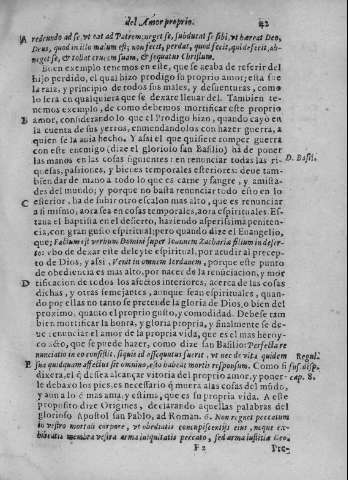 del Amor proprio. 42
A redeundo ad se, vt eat ad Patrem; urget se, subducat se sibi, vt hæreat Deo,
Deus, quod in illo malum est; non fecit, perdat, quod fecit, qui defecit, ab-
neget se, & tollat crucem suam, & sequatur Christum.
Buen exemplo tenemos en este, que se acaba de referir del
hijo perdido, el qual hizo prodigo su proprio amor; esta fue
la raiz, y principio de todos sus males, y desuenturas, como
lo serà en qualquiera que se dexare lleuar del. Tambien te-
nemos exemplo, de como debemos mortificar este proprio
B amor, considerando lo que el Prodigo hizo, quando cayò en
la cuenta de sus yerros, enmendandolos con hazer guerra, a
quien se la auia hecho. Y assi el que quisiere romper guerra
con este enemigo (dize el glorioso san Basilio) ha de poner
las manos en las cosas siguientes: en renunciar todas las ri-
D. Basil.
quezas, passiones, y bienes temporales esteriores: deue tam-
bien dar de mano a todo lo que es carne y sangre, y amista-
des del mundo; y porque no basta renunciar todo esto en lo
C esterior, ha de subir otro escalon mas alto, que es renunciar
a si mismo, aora sea en cosas temporales, aora espirituales. Es-
taua el Baptista en el desierto, haziendo asperissima peniten-
cia, con gran gusto espiritual; pero quando dize el Euangelio,
que; Factum est verbum Domini super Ioannem Zachariæ filium in deser-
to: vbo de dexar este deleyte espiritual, por acudir al precep-
to de Dios, y assi, Venit in omnem Iordanem, porque este punto
de obediencia es mas alto, por nacer de la renunciacion, y mor
D tificacion de todos los afectos interiores, acerca de las cosas
dichas, y otras semejantes, aunque sean espirituales, quan-
do por ellas no tanto se pretende la gloria de Dios, o bien del
proximo, quanto el proprio gusto, y comodidad. Debese tam
bien mortificar la honra, y gloria propria, y finalmente se de-
ue renunciar el amor de la propria vida, que es el mas heroy-
co acto, que se puede hazer, como dize san Basilio: Perfecta re
nunciatio in eo consistit, siquis id assequutus fuerit, vt nec de vita quidem
Regul.
E sua quidquam affectus sit omnino, sed habeat mortis responsum. Como si
fus. disp.
dixera, el q̃ dessea alcançar vitoria del proprio amor, y poner-
cap. 8.
le debaxo los pies, es necessario q̃ muera a las cosas del mũdo,
y aun a lo q̃ mas ama, y estima, que es su propria vida. A este
proposito dize Origines, declarando aquellas palabras del
glorioso Apostol san Pablo, ad Roman. 6. Non regnet peccatum
in vestro mortali corpore, vt obediatis concupiscentijs eius, neque ex-
hibeatis membra vestra arma iniquitatis peccato, sed arma iustitiæ Deo.
F 2 Pec-